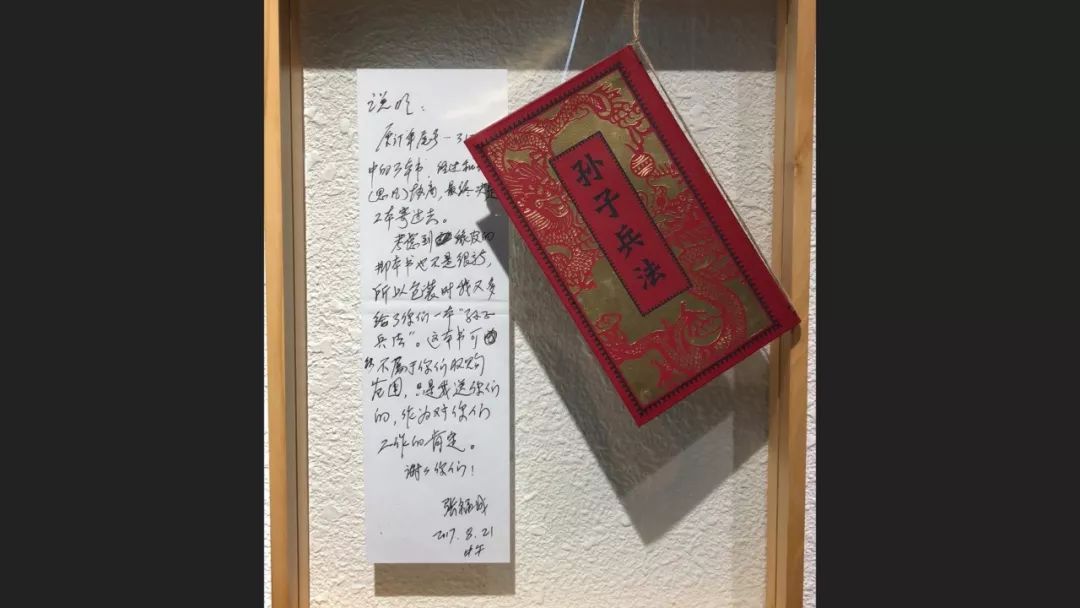 说明：
原订单尾号一31
中的3本书，经过和
(思凡)协商，最终决定
2本寄过去。
考虑到绿皮的
那本书也不是很新，
所以包装时我又多
给了你们一本“孙子
兵法”。这本书可
能不属于你们收购
范围，只是我送你们
的，作为对你们
工作的肯定。
谢谢你们！
张
2017.8.21
中午
孙子兵法